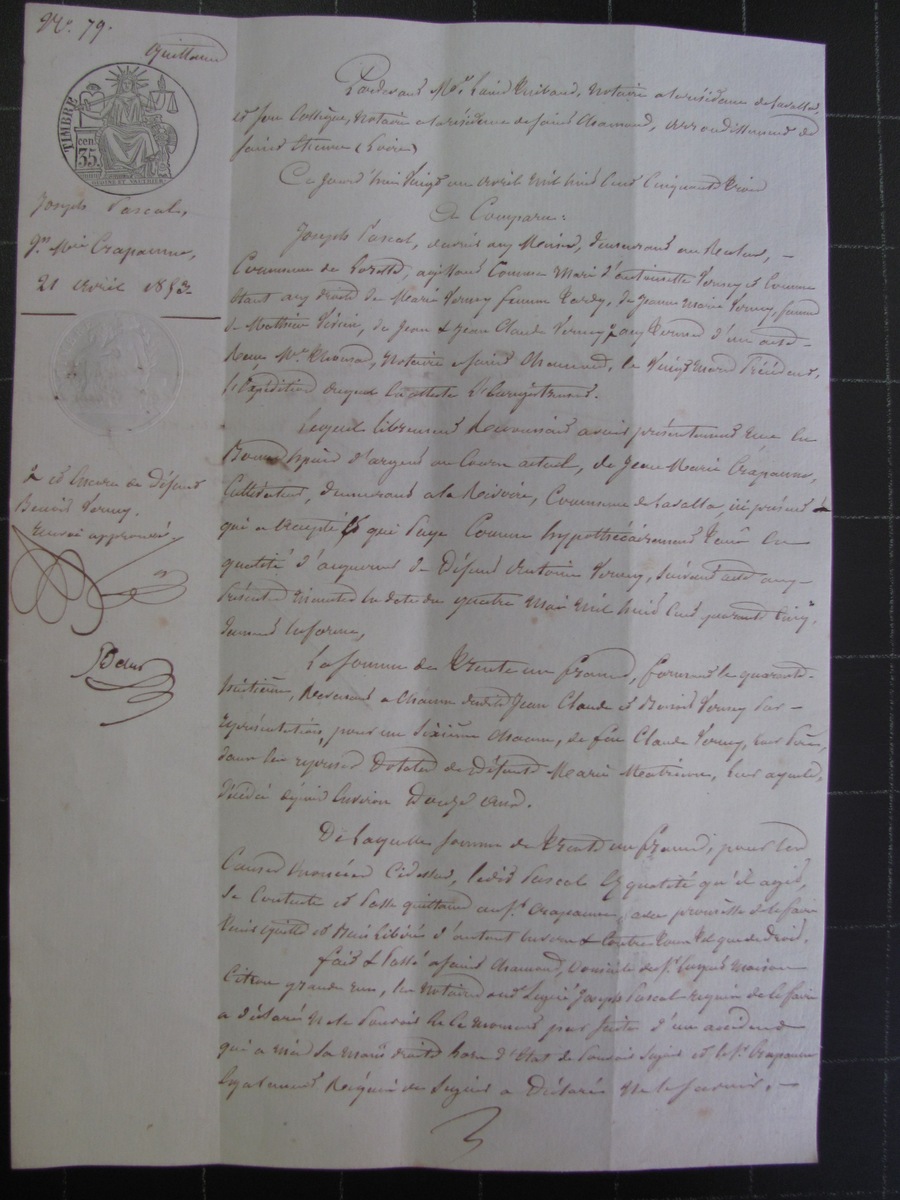 N.° 79.
Quittance
TIMBRE
cent
35
Joseph Pascal,
à Jn Mie Crapanne,
21 avril 1853.
et encore de défunt
Benoit Verney.
renvoi approuvé.
Pardevant Me Louis notaire à la résidence de Lavalla,
et son Collègue, notaire à la résidence de Saint Chamond, arrondissement de
Saint Etienne (Loire)
Ce jourd'hui vingt un avril mil huit cent cinquante trois
A Comparu:
Joseph Pascal, demeurant au
Commune de agissant comme mari d'antoinette Verney et comme
étant aux droits de Marie Verney femme de Jeanne Marie Verney, femme
de Mathieu de Jean & Jean Claude Verney, aux termes d'un acte
reçu Me notaire à Saint Chamond, le vingt mars précédent,
l'expédition duquel l'enregistrement.
Lequel librement reconnait avoir présentement reçu en
bonnes espèces d'argent au cours actuel, de Jean Marie Crapanne,
Cultivateur, demeurant à la Commune de Lavalla, ici présent
qui accepte & qui paye comme hypothécairement tenu en
qualité d'acquéreur de défunt Antoine Verney, suivant acte aux
présentes minutes en date du quatre mai mil huit cent quarante cinq,
dument en forme,
La somme de trente un francs, formant le quarante
huitième, revenant à chacun desdits Jean Claude et Benoit Verney par
représentation, pour un sixième chacun, de feu Claude Verney, leur père,
dans les reprises dotales de défunte Marie leur ayeule,
décédée depuis environ douze ans.
De laquelle somme de trente un francs, pour les
causes énoncées ci dessus, ledit Pascal ès qualité qu'il agit,
se contente et passe quittance au Sr Crapanne, avec promesse de le faire
tenir quitte et bien libéré d'autant envers & contre tous tel que de droit.
Fait & passé à Saint Chamond, domicile de Sr maison
grande rue, les notaires ont signé Joseph Pascal requis de le faire
a déclaré ne le pouvoir en ce moment par suite d'un accident
qui a mis sa main droite hors d'état de pouvoir signer et le Sr Crapanne
également requis de signer a déclaré ne le savoir.